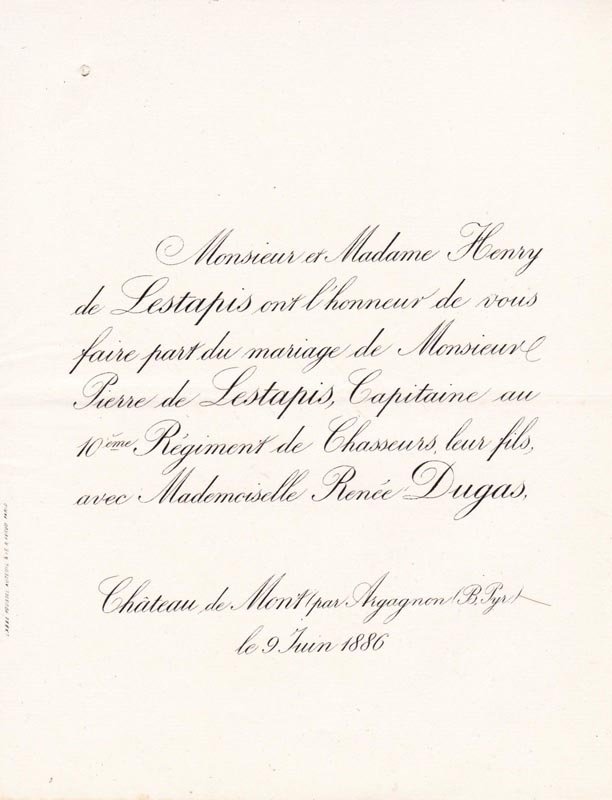 Monsieur et Madame Henry
de Lestapis ont l'honneur de vous
faire part du mariage de Monsieur
Pierre de Lestapis, Capitaine au
10ème Régiment de Chasseurs, leur fils,
avec Mademoiselle Renée Dugas.
Château de Mont (par Argagnon (B. Pyr)
le 9 Juin 1886